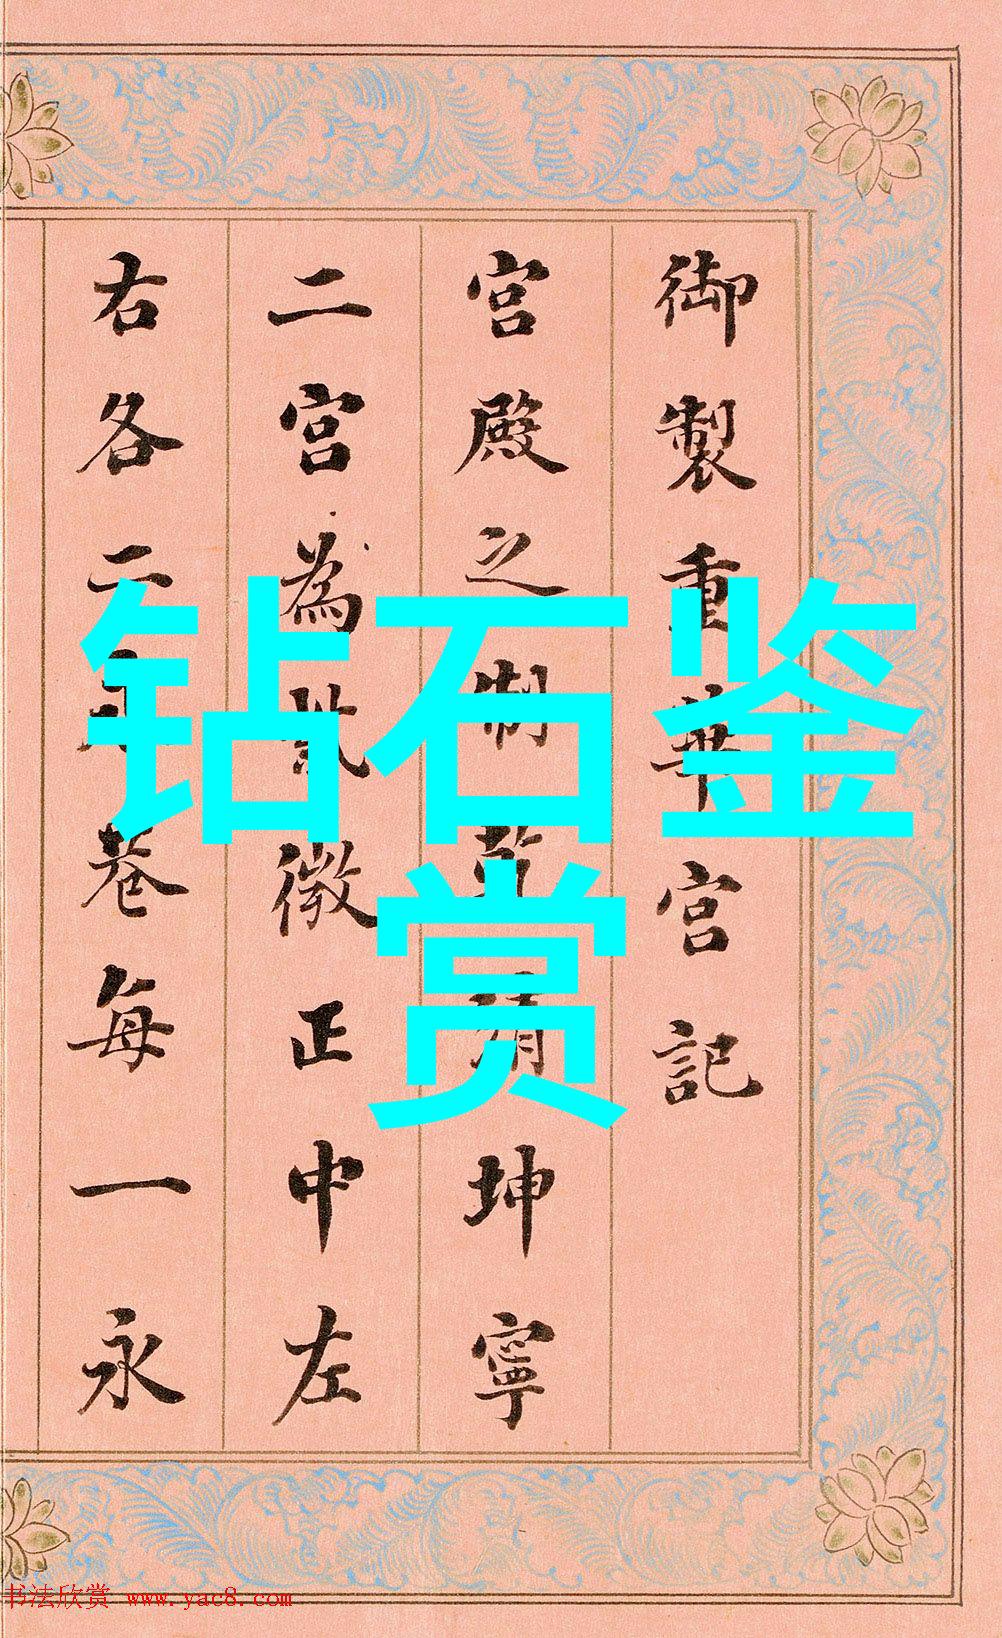 御製重華宮記
宮殿之制乾清坤寧
二宮為紫微正中左
右各二永巷每一永
钻石鉴
赏
书法欣赏 www.yac8.com